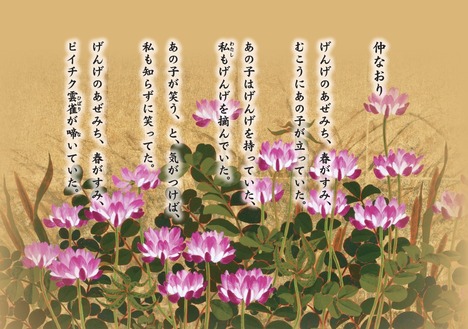 仲なおり
げんげのあぜみち、春がすみ、
むこうにあの子が立っていた。
あの子はげんげを持っていた、
私もげんげを摘んでいた。
わたし
あの子が笑う、と、気がつけば、
私も知らずに笑ってた。
げんげのあぜみち、春がすみ、
ピイチク雲雀が啼いていた。
ひばり
な